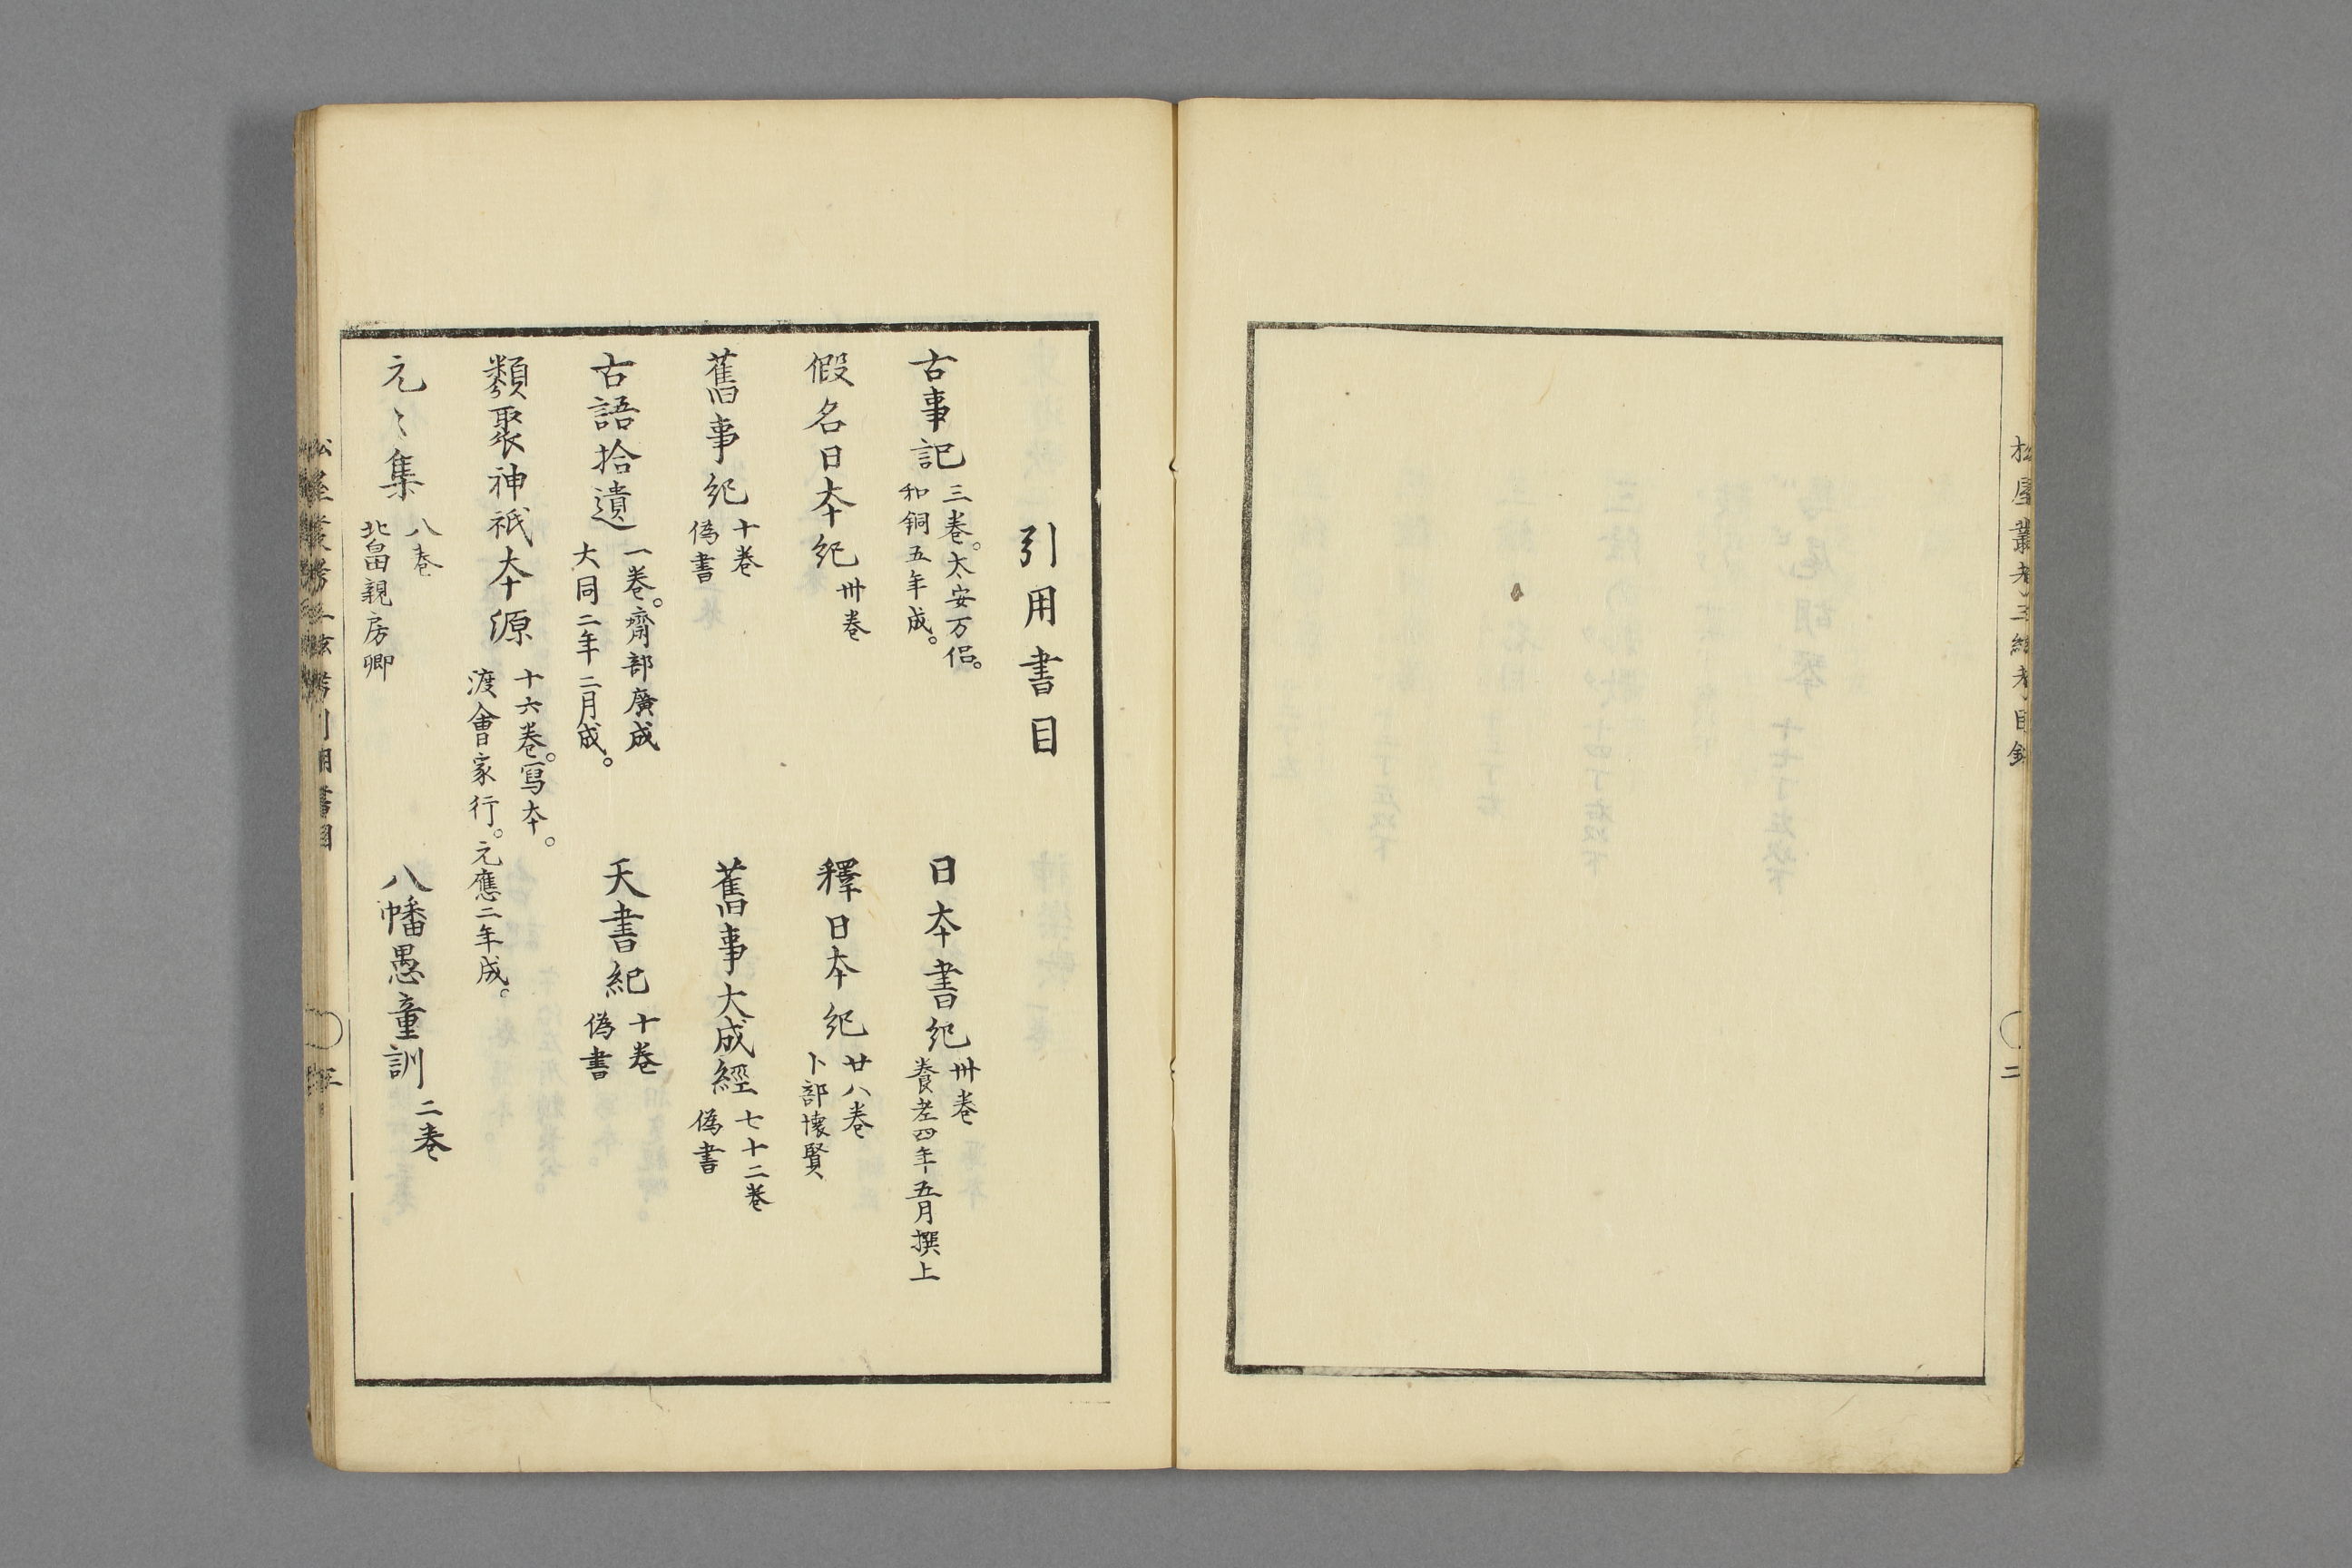 松屋叢考三絃考目録
二
引用書目
古事記 三卷。太安万侶。
和銅五年成。
日本書紀 卅卷
養老四年五月撰上
假名日本紀 卅卷
釋日本紀 廿八卷
卜部懐賢
舊事紀 十卷
偽書
舊事大成經 七十二卷
偽書
古語拾遺 一卷。齋部廣成
大同二年二月成。
天書紀 十卷
偽書
類聚神祇本源 十六卷。寫本。
渡會家行。元應二年成。
元〻集 八卷
北畠親房卿
八幡愚童訓 二卷
松屋叢考三絃考引用書目
三